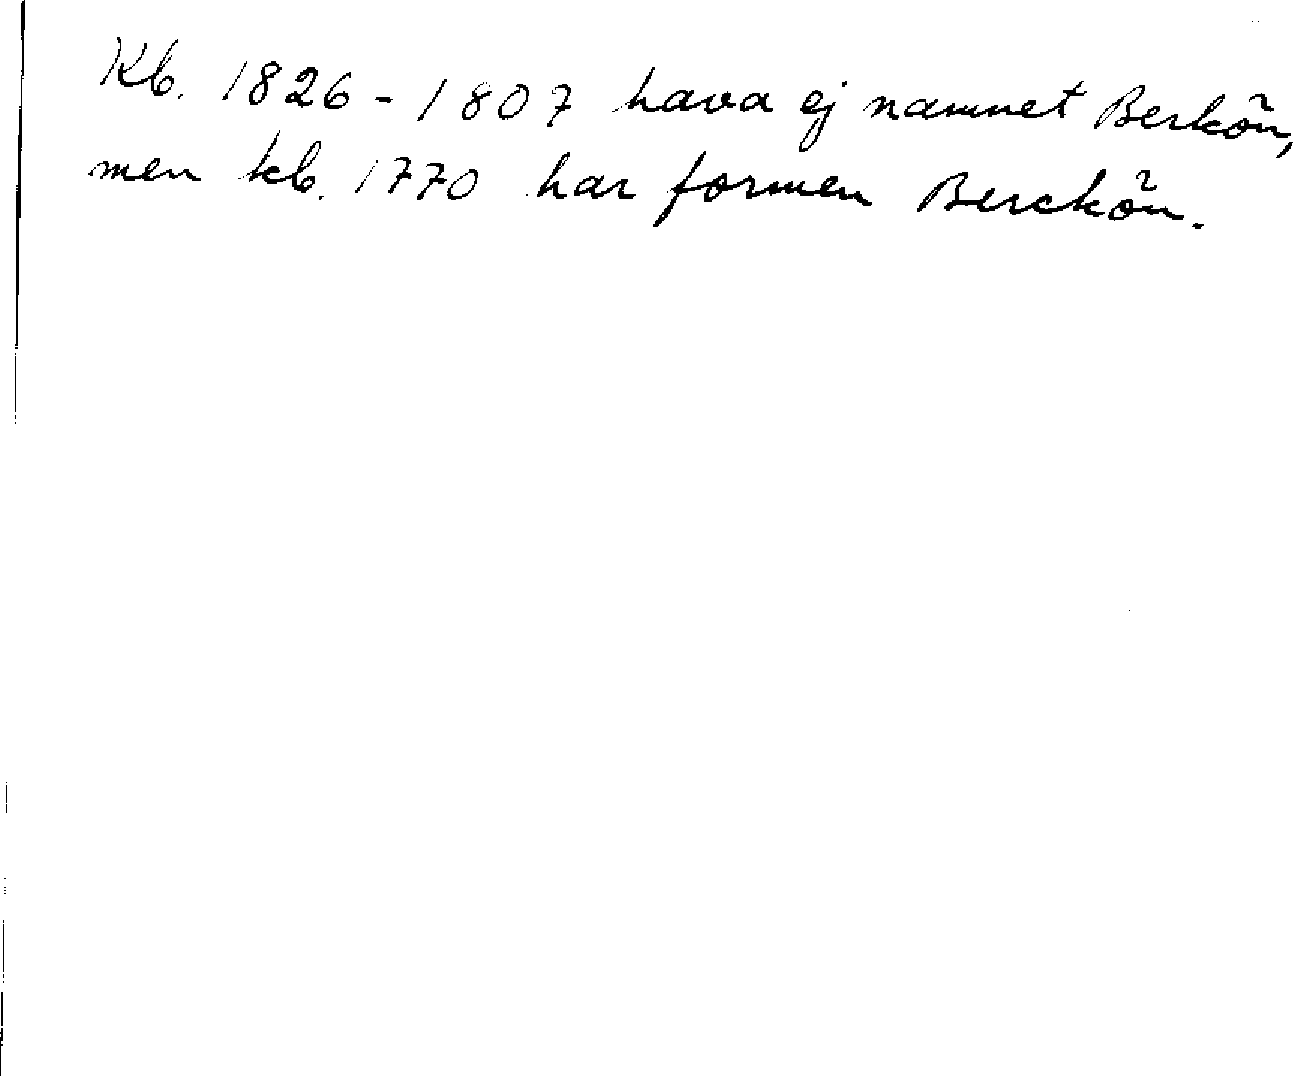 Kb. 1826-1807 hava ej namnet Berkön,
men kb. 1770 har formen Berckön.